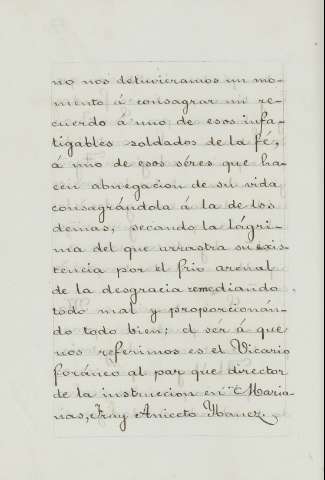 no nos detuvieramos un mo-
mento á consagrar un re-
cuerdo á uno de esos infa-
tigables soldados de la fé,
á uno de esos séres que ha-
cen abnegacion de su vida
consagrándola á la de los
demas, secando la lágri-
ma del que arrastra su exis-
tencia por el frio arenal
de la desgracia remediando
todo mal y proporcionán-
do todo bien; el sér á que
nos referimos es el Vicario
foráneo al par que director
de la instruccion en Maria-
nas, Fray Aniceto Ybanez.